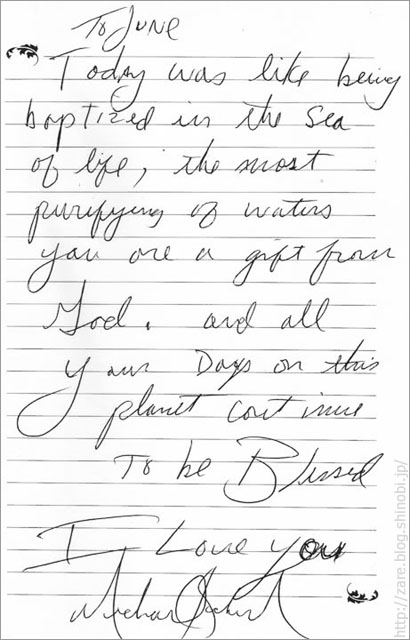 To June
Today was like being
baptized in the Sea
of life, the most
purifying of waters
you are a gift from
God. and all
your Days on this
planet continue
To be Blessed
I Love you
Michael Jackson
http://zare.blog.shinobi.jp/